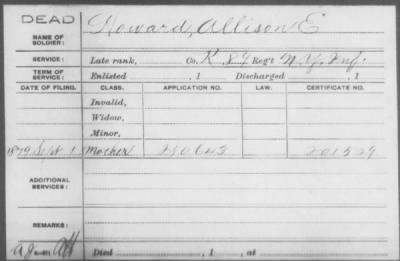 DEAD
NAME OF SOLDIER: Howard, Allison E
SERVICE: Late rank, Co. K 89 Reg't N.Y. Inf.
TERM OF SERVICE: Enlisted , 1 Discharged , 1
DATE OF FILING. CLASS. APPLICATION NO. LAW. CERTIFICATE NO.
Invalid,
Widow,
Minor,
1879 Sept 1 Mother 250643 201529
ADDITIONAL SERVICES:
REMARKS:
Died , 1 , at